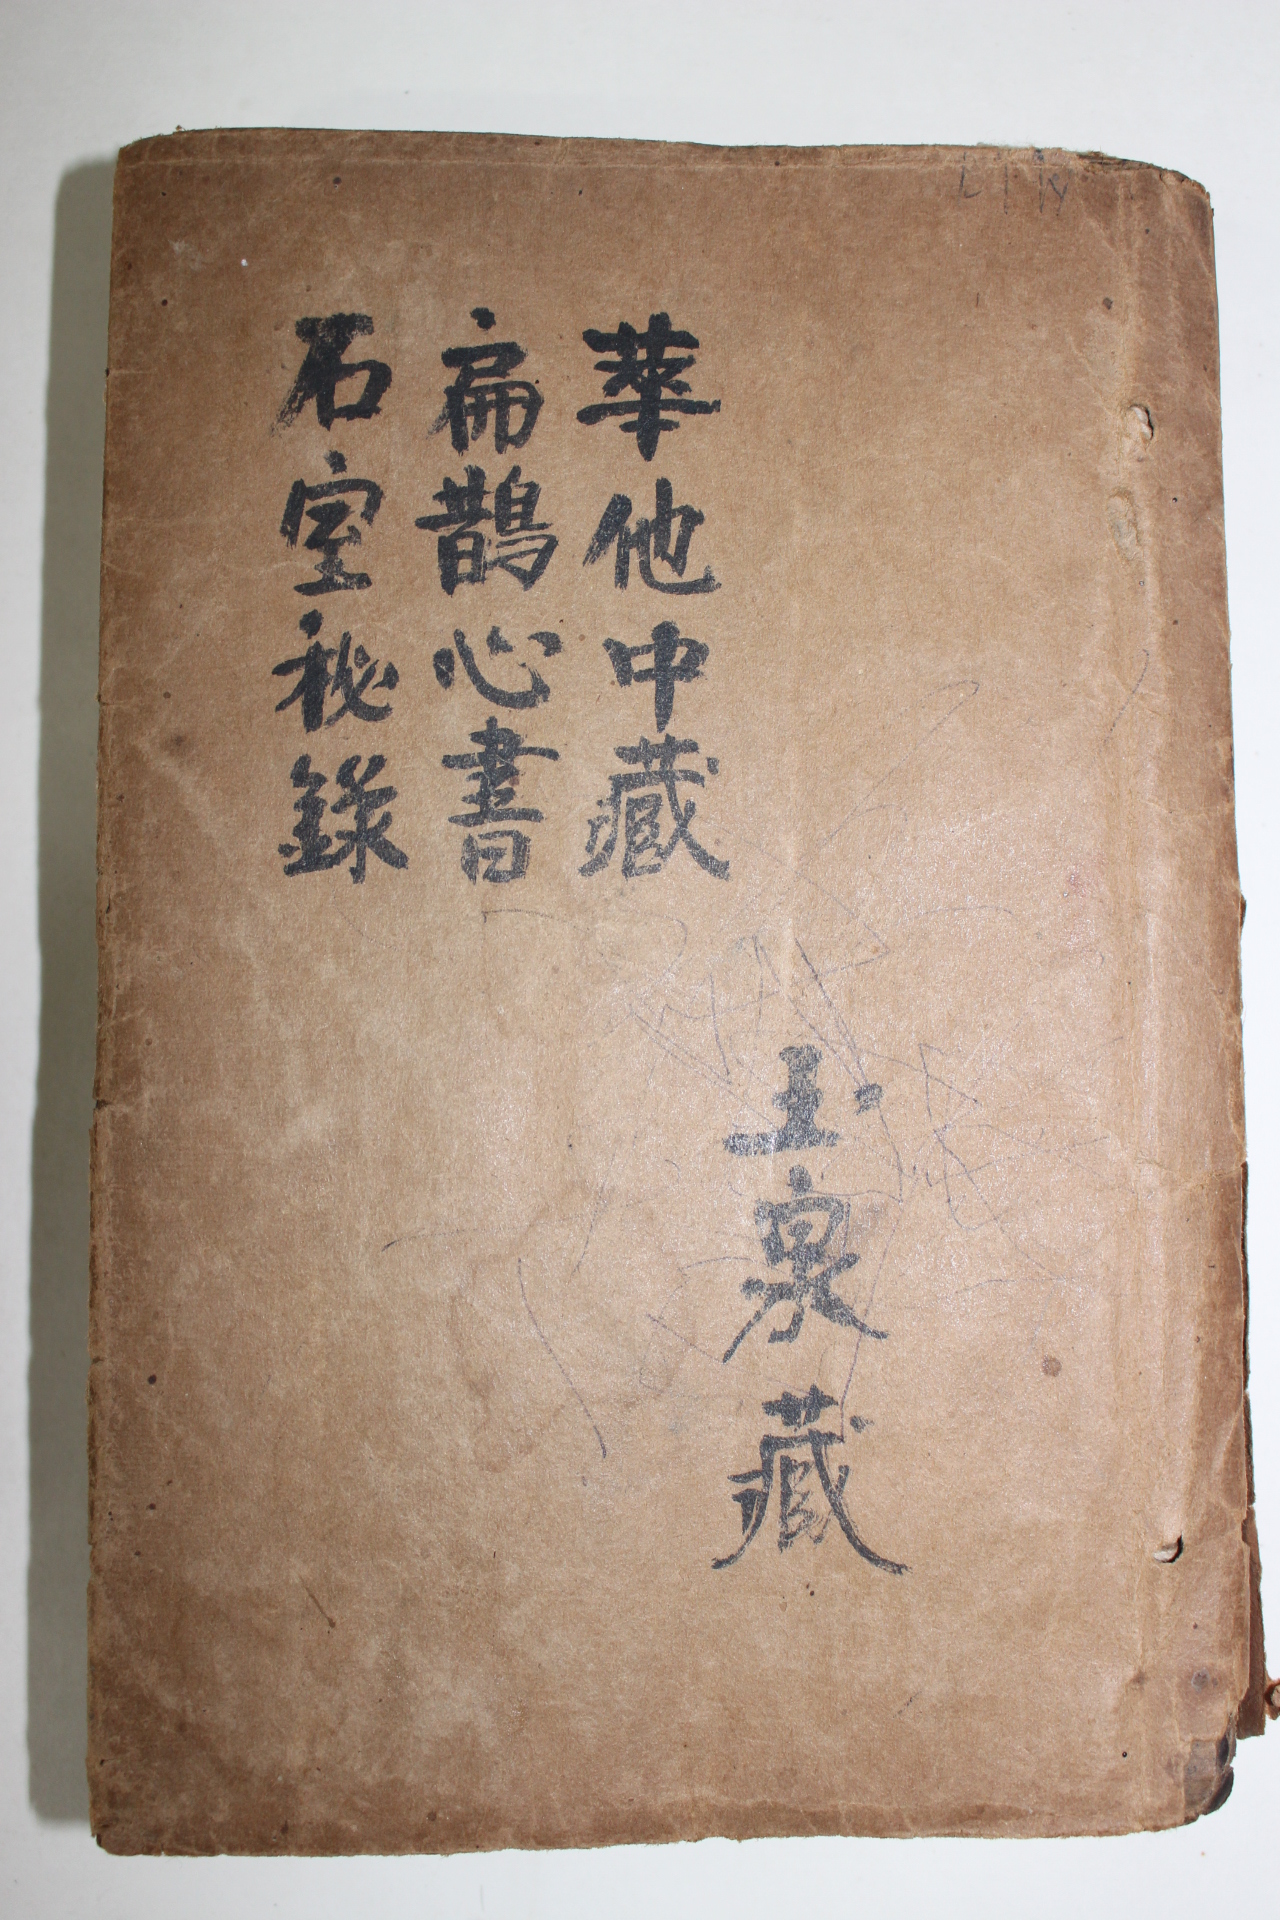 玉泉藏
華他中藏
扁鵲心書
石室秘錄